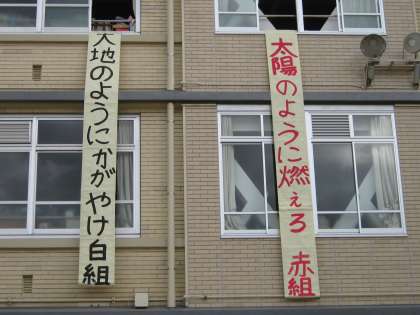 太陽のように燃えろ 赤組
大地のようにかがやけ白組